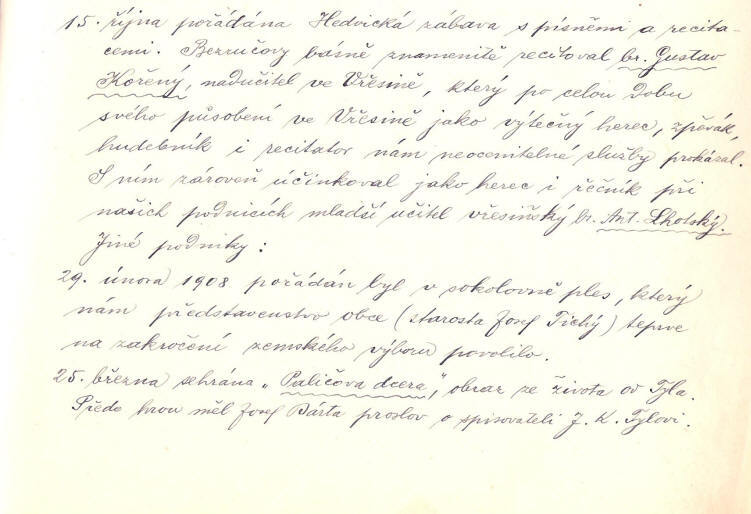 15. října pořádána Hedvická zábava s písněmi a recita-
cemi. Bezručovy básně znamenitě recitoval br. Gustav
Kořený, nadučitel ve Vřesině, který po celou dobu
svého působení ve Vřesině jako výtečný herec, zpěvák,
hudebník i recitator nám neocenitelné služby prokázal.
S ním zároveň účinkoval jako herec i řečník při
našich podnicích mladší učitel vřesinský br. Ant. Lhotský.
Jiné podniky:
29. února 1908 pořádán byl v sokolovně ples, který
nám představenstvo obce (starosta Josef Tichý) teprve
na zakročení zemského výboru povolilo.
25. března sehrána „Paličova dcera", obraz ze života od Tyla.
Přede hrou měl Josef Bárta proslov o spisovateli J. K. Tylovi.